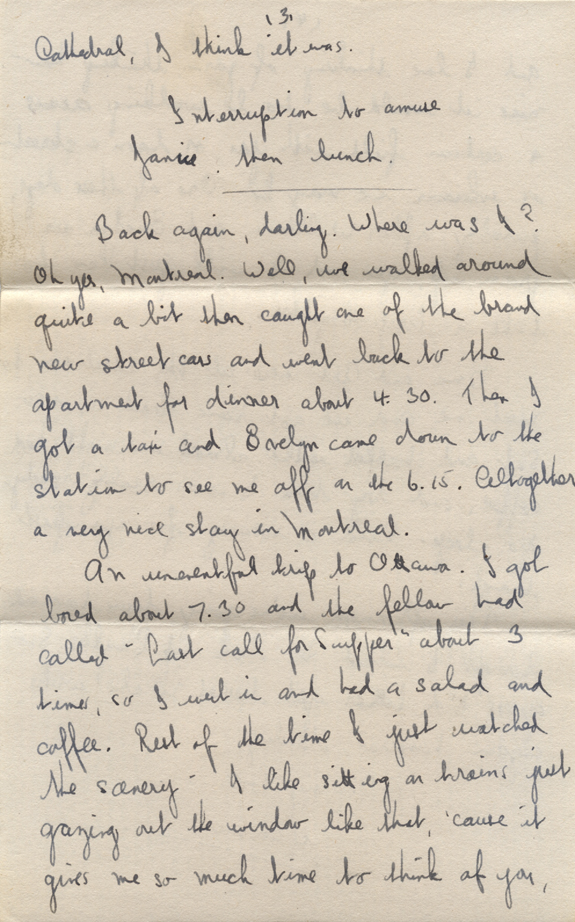 (3)
Cathedral, I think it was.
Interruption to amuse
Janie. then lunch.
Back again, darling. Where was I?
Oh yes, Montreal. Well, we walked around
quite a bit then caught one of the brand
new street cars and went back to the
apartment for dinner about 4.30. Then I
got a taxi and Evelyn came down to the
station to see me off on the 6.15. Altogether
a very nice stay in Montreal.
An uneventful trip to Ottawa. I got
bored about 7.30 and the fellow had
called "Last call for Supper" about 3
times, so I went in and had a salad and
coffee. Rest of the time I just watched
the scenery - I like sitting on trains just
gazing out the window like that, 'cause it
gives me so much time to think of you,